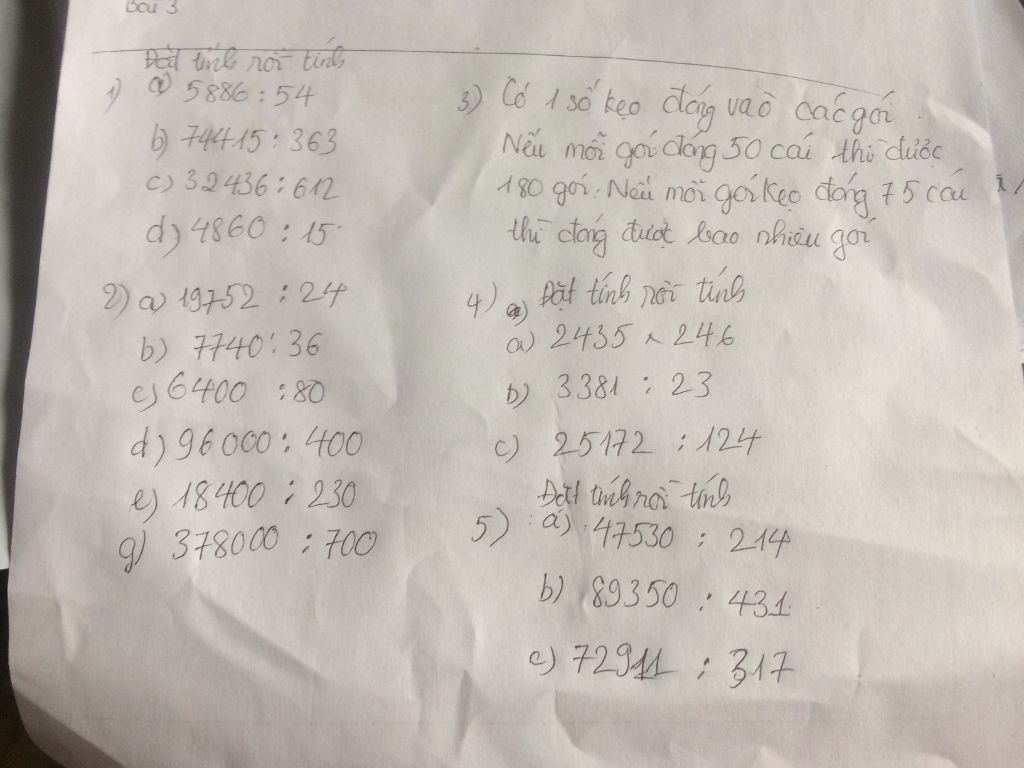 Bài 3
Đặt tính rồi tính
1) a) 5886 : 54
b) 74415 : 363
c) 32436 : 612
d) 4860 : 15
2) a) 19752 : 24
b) 7740 : 36
c) 6400 : 80
d) 96000 : 400
e) 18400 : 230
g) 378000 : 700
3) Có 1 số kẹo đóng vaò các gói.
Nếu mỗi gói đóng 50 cái thì được
180 gói. Nếu mỗi gói kẹo đóng 75 cái
thì đóng được bao nhiêu gói
4) a) Đặt tính rồi tính
a) 2435 x 246
b) 3381 : 23
c) 25172 : 124
Đặt tính rồi tính
5) a) 47530 : 214
b) 89350 : 431
c) 72911 : 317